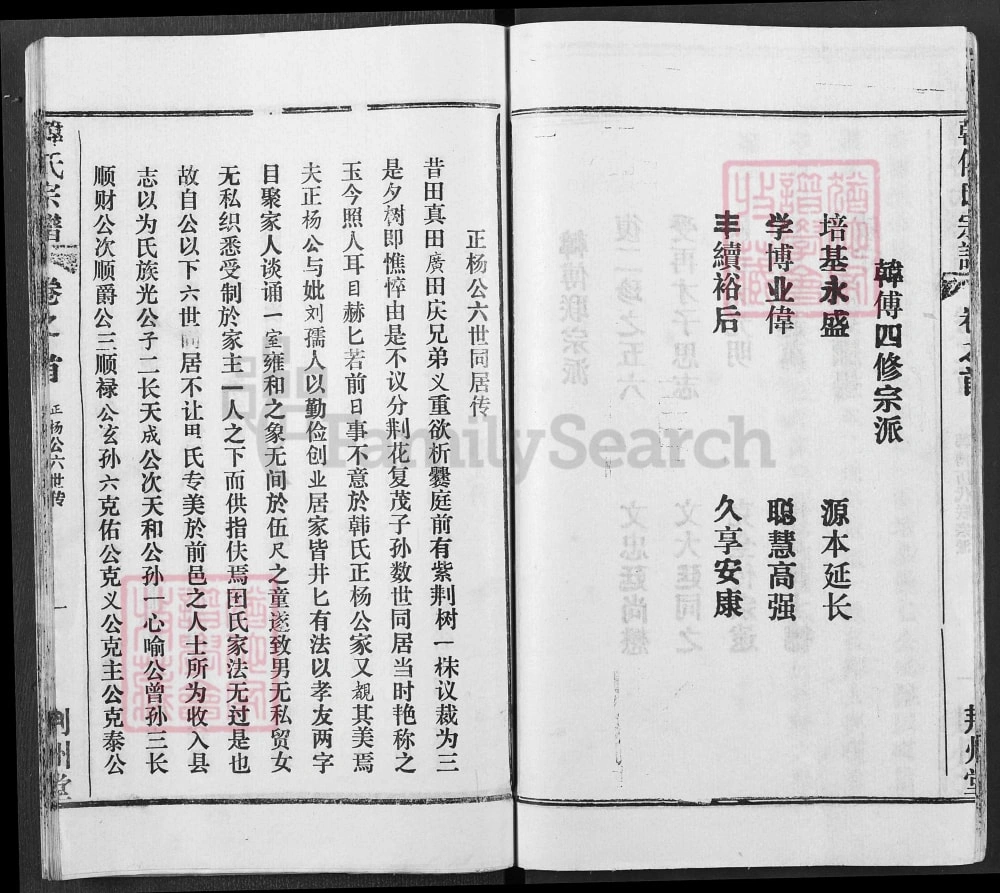 韓傅四修宗派
培基永盛 源本延长
学博业偉 聪慧高强
丰續裕后 久享安康
荆州堂
正杨公六世同居传
昔田真田廣田庆兄弟义重欲析爨庭前有紫荆树一株议裁为三
是夕树即憔悴由是不议分荆花复茂子孙数世同居当时艳称之
玉今照人耳目赫匕若前日事不意於韩氏正杨公家又觌其美焉
夫正杨公与妣刘孺人以勤俭创业居家皆井匕有法以孝友两字
目聚家人谈诵一室雍和之象无间於伍尺之童遂致男无私贸女
无私织悉受制於家主一人之下而供指伕焉田氏家法无过是也
故自公以下六世同居不让田氏专美於前邑之人士所为收入县
志以为氏族光公子二长天成公次天和公孙一心喻公曾孙三长
顺财公次顺爵公三顺禄公玄孙六克佑公克义公克主公克泰公
韓氏宗譜 卷之首 正杨公六世传 一 荆州堂
FamilySearch